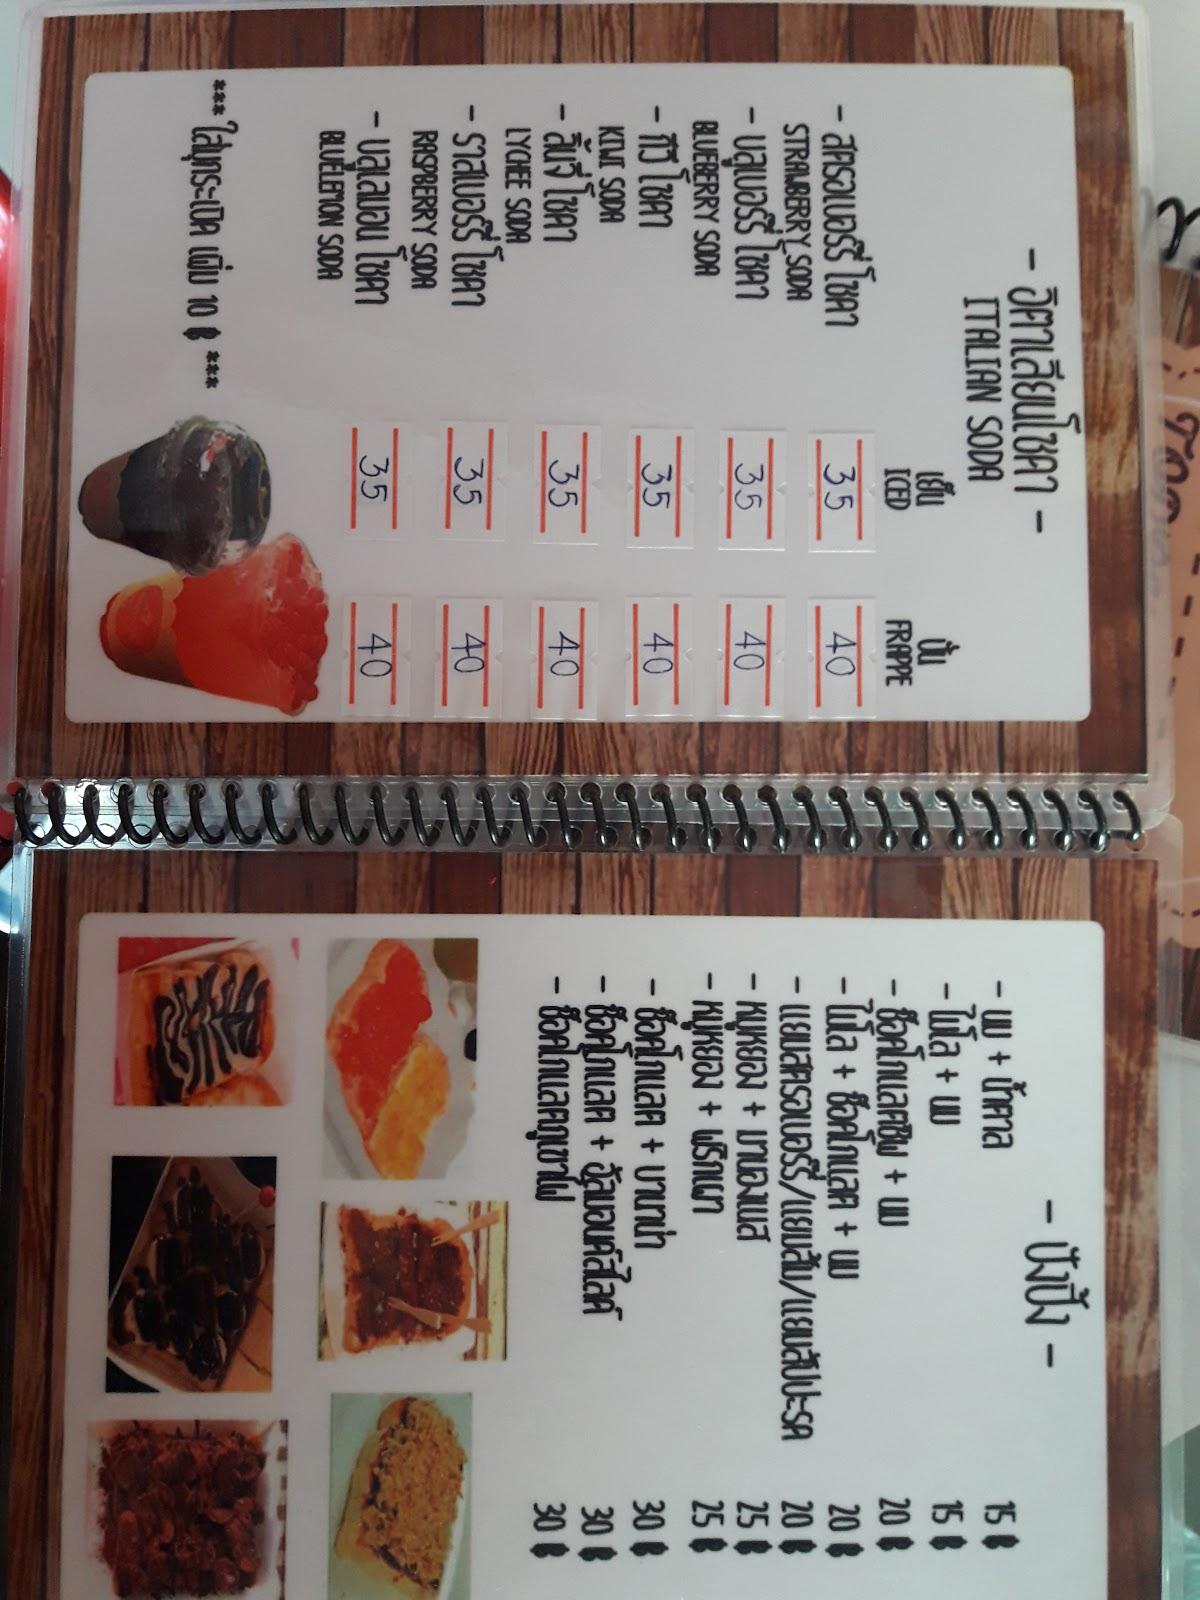 - อิตาเลียนโซดา -
ITALIAN SODA
เย็น ปั่น
ICED FRAPPE
- สตรอเบอร์รี่ โซดา 35 40
STRAWBERRY SODA
- บลูเบอร์รี่ โซดา 35 40
BLUEBERRY SODA
- กีวี โซดา 35 40
KIWI SODA
- ลิ้นจี่ โซดา 35 40
LYCHEE SODA
- ราสเบอร์รี่ โซดา 35 40
RASPBERRY SODA
- บลูเลมอน โซดา 35 40
BLUELEMON SODA
*** ใส่มุกระเบิด เพิ่ม 10 ฿ ***
- ปังปิ้ง -
- นม + น้ำตาล 15 ฿
- ไมโล + นม 15 ฿
- ช็อคโกแลตชิพ + นม 20 ฿
- ไมโล + ช็อคโกแลต + นม 20 ฿
- แยมสตรอเบอร์รี่/แยมส้ม/แยมสับปะรด 20 ฿
- หมูหยอง + มายองเนส 25 ฿
- หมูหยอง + พริกเผา 25 ฿
- ช็อคโกแลต + บานาน่า 30 ฿
- ช็อคโกแลต + อัลมอนด์สไลด์ 30 ฿
- ช็อคโกแลตภูเขาไฟ 30 ฿